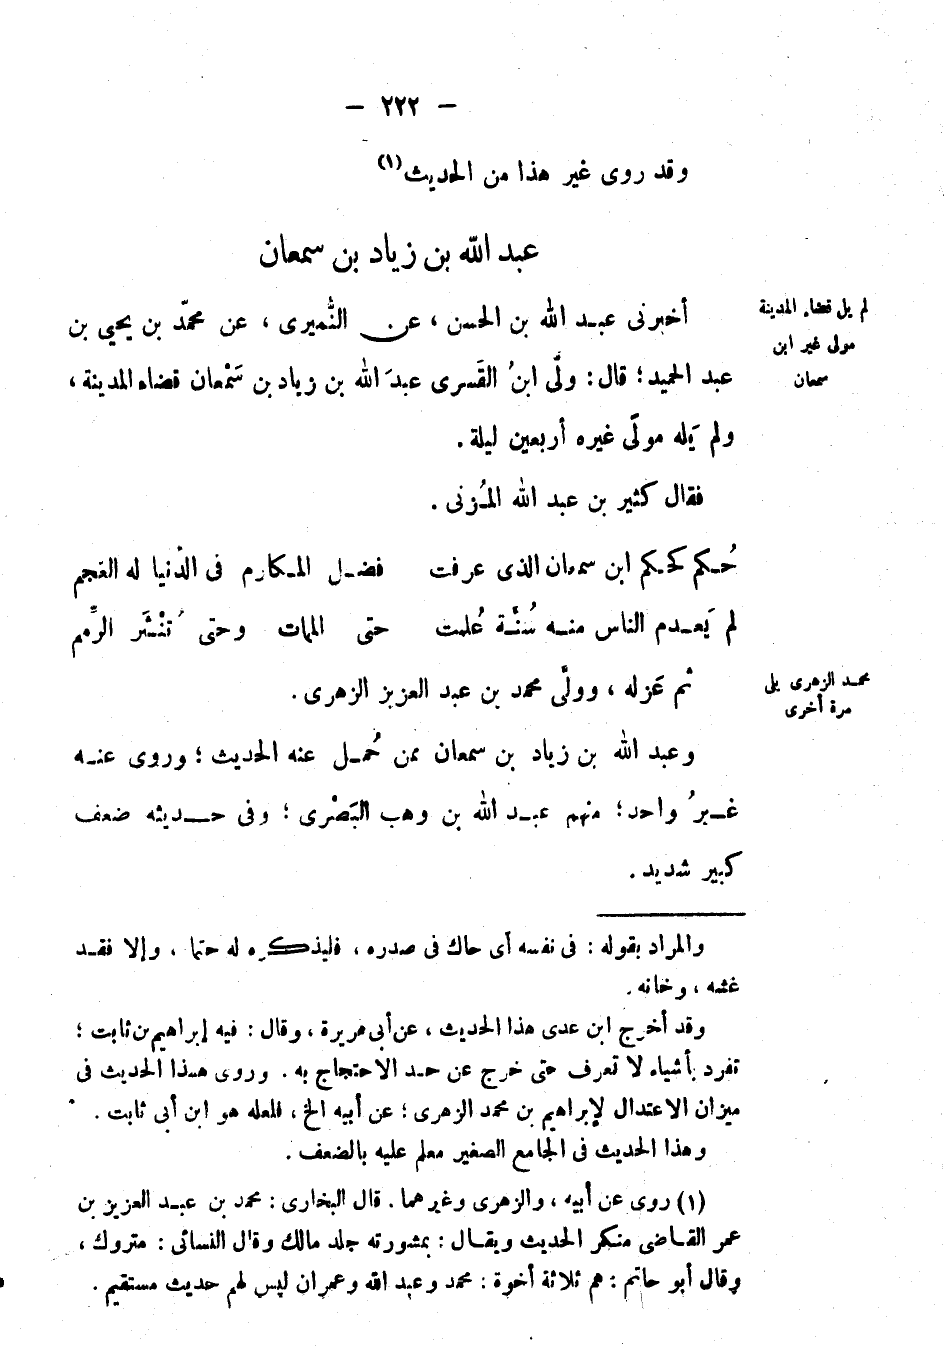 — ٢٢٢ —
وقد روى غير هذا من الحديث(١)
عبد الله بن زياد بن سمعان
أخبرنى عبـد الله بن الحسن ، عن النُّميرى ، عن محمّد بن يحيى بن
عبد الحميد؛ قال: ولَّى ابنُ القَسرى عبدَ الله بن زياد بن سَمْعان قضاء المدينة ،
ولم يَله مولًى غيره أربعين ليلة .
لم يل قضاء المدينة
مولى غير ابن
سمعان
فقال كثير بن عبد الله المُزنى .
حُـكم كحكم ابن سمعان الذى عرفت فضـل المـكارم فى الدّنيا له العجم
لم يَعـدم الناس منـه سُنَّـة عُلمت حتى الممات وحتى تُنْشَر الرِّمم
ثم عَزله ، وولَّى محمد بن عبد العزيز الزهرى .
محمـد الزهرى يلى
مرة أخرى
وعبد الله بن زياد بن سمعان ممن حُمـل عنه الحديث ؛ وروى عنـه
غـيرُ واحد؛ منهم عبـد الله بن وهب البَصْرى ؛ وفى حـديثه ضعف
كبير شديد .
والمراد بقوله : فى نفسه أى حاك فى صدره ، فليذكره له حتما ، وإلا فقـد
غشه ، وخانه .
وقد أخرج ابن عدى هذا الحديث ، عن أبى هريرة ، وقال : فيه إبراهيم بن ثابت ؛
تفرد بأشياء لا تعرف حتى خرج عن حـد الاحتجاج به . وروى هـذا الحديث فى
ميزان الاعتدال لإبراهيم بن محمد الزهرى ؛ عن أبيه الخ ، فلعله هو ابن أبى ثابت .
وهذا الحديث فى الجامع الصغير معلم عليه بالضعف .
(١) روى عن أبيه ، والزهرى وغيرهما . قال البخارى : محمد بن عبـد العزيز بن
عمر القـاضى منكر الحديث ويقـال : بمشورته جلد مالك وقال النسائى : متروك ،
وقال أبو حاتم : هم ثلاثة أخوة : محمد وعبد الله وعمران ليس لهم حديث مستقيم .